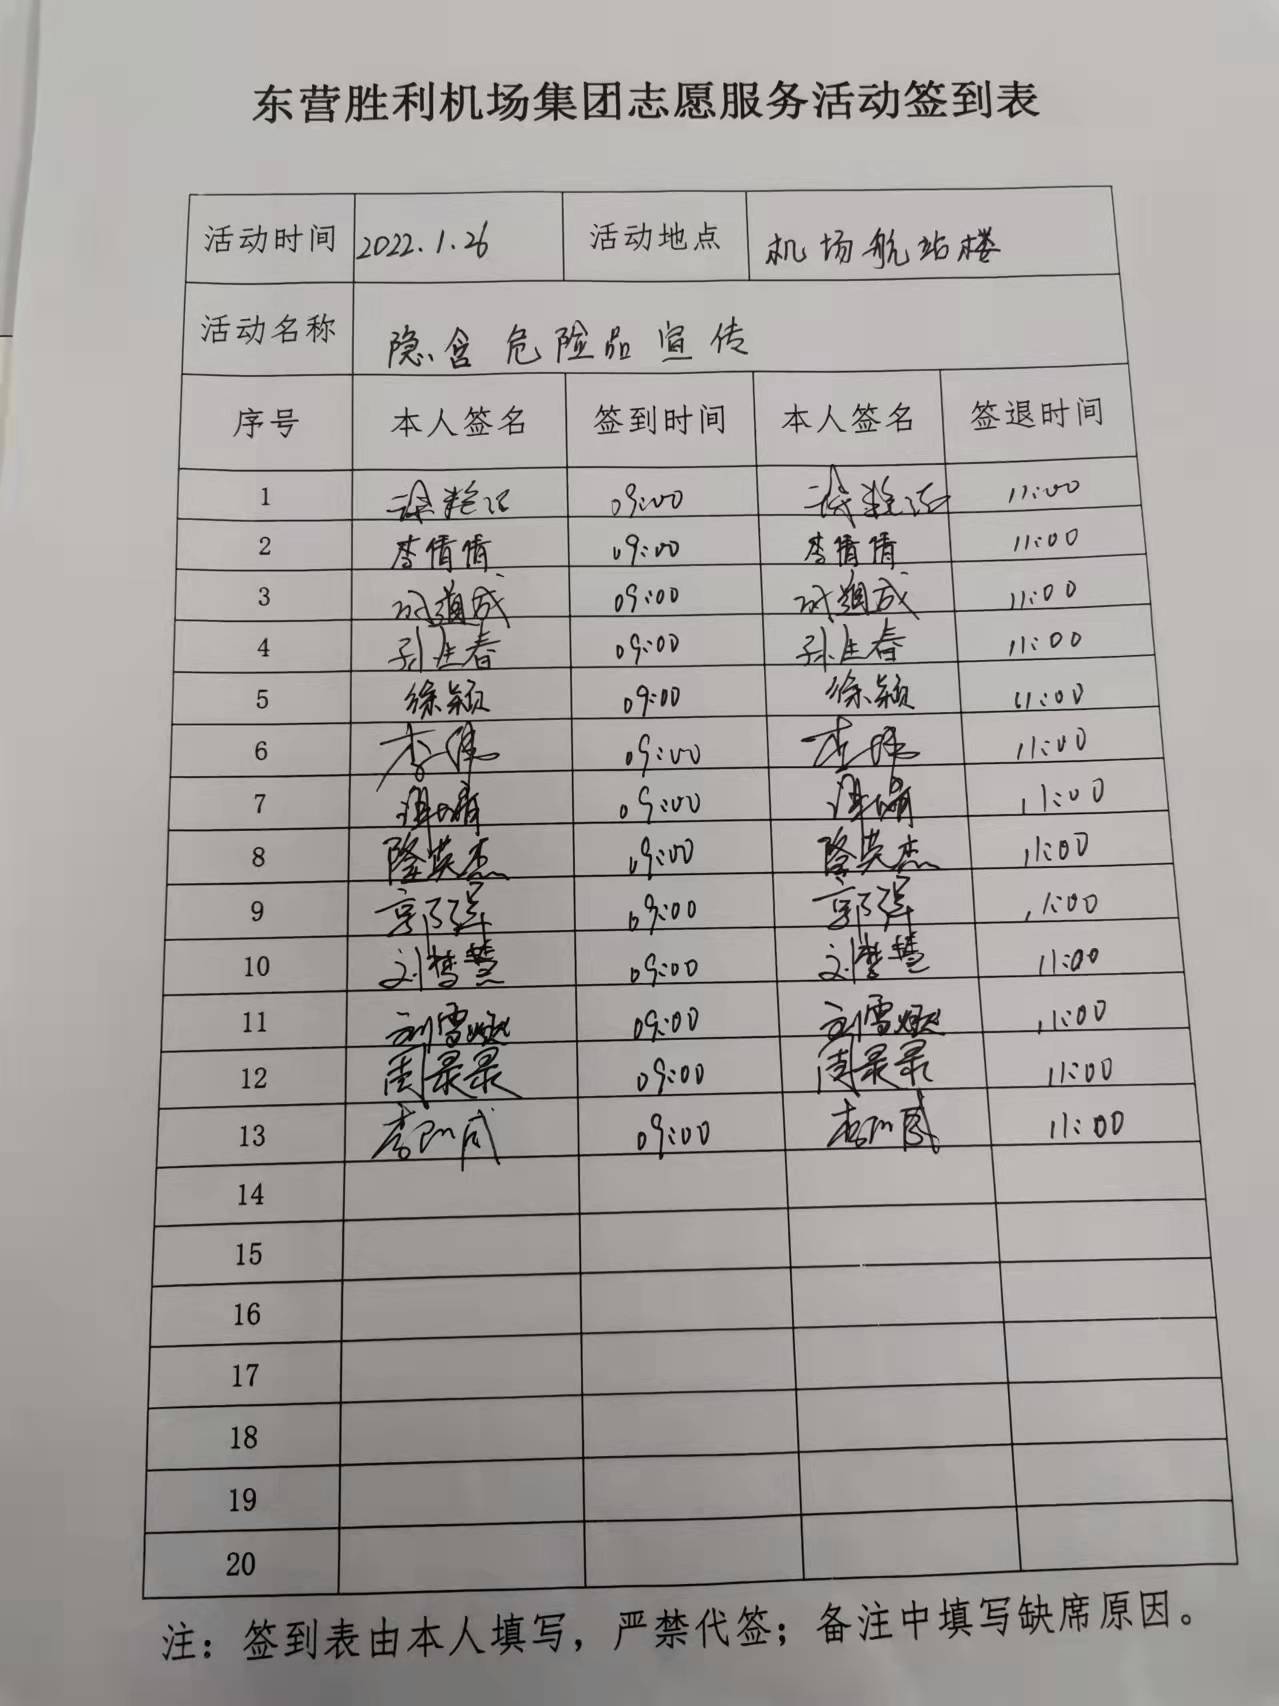 东营胜利机场集团志愿服务活动签到表
活动时间 2022.1.26 活动地点 机场航站楼
活动名称 隐含危险品宣传
序号 本人签名 签到时间 本人签名 签退时间
1 09:00 11:00
2 李倩倩 09:00 李倩倩 11:00
3 09:00 11:00
4 09:00 11:00
5 徐颖 09:00 徐颖 11:00
6 李伟 09:00 李伟 11:00
7 09:00 11:00
8 隆英杰 09:00 隆英杰 11:00
9 郭强 09:00 郭强 11:00
10 刘梦慧 09:00 刘梦慧 11:00
11 刘雪燃 09:00 刘雪燃 11:00
12 周景景 09:00 周景景 11:00
13 09:00 11:00
14
15
16
17
18
19
20
注：签到表由本人填写，严禁代签；备注中填写缺席原因。